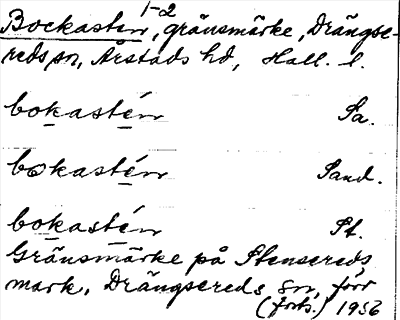 1-2
Bockasten, gränsmärke, Drängse-
reds sn, Årstads hd, Hall. l.
bokastén Sa.
bωkastén Sand.
bokastén St.
Gränsmärke på Stensereds
mark, Drängsereds sn, förr
(forts.) 1956